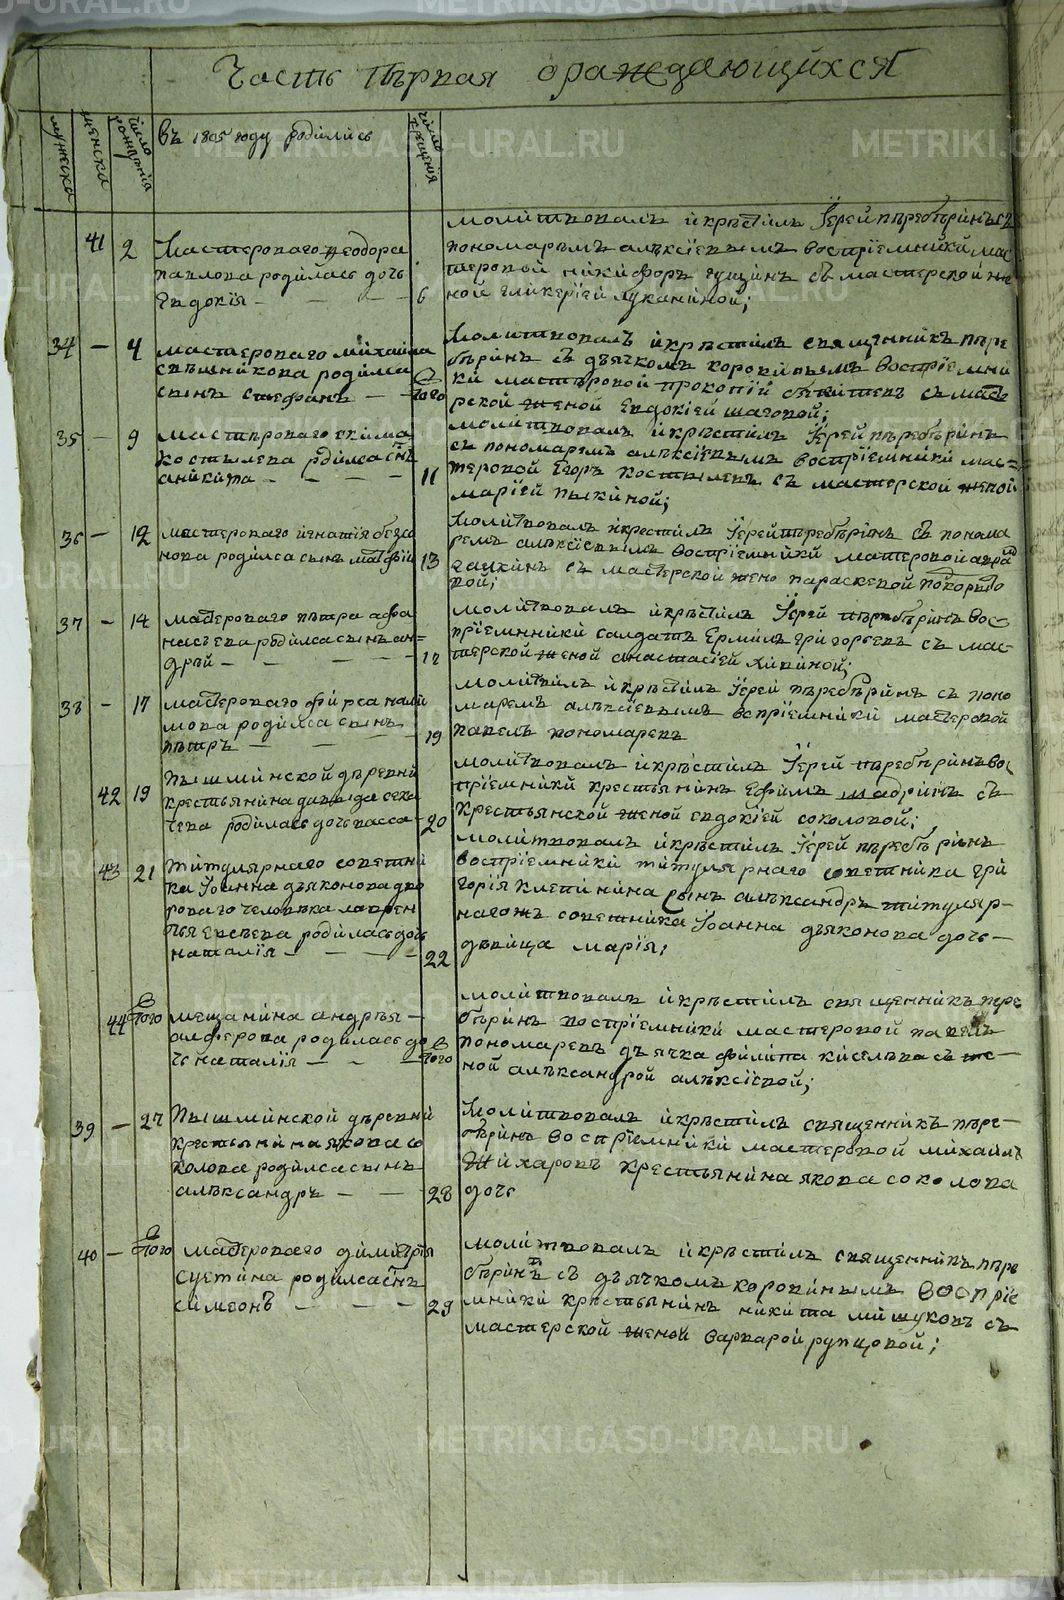 Часть пѣрвая ораждающихся
мужеска
женска
число рождѣнія
въ 1805 году родились
число крещенія
41 2 Мастероваго Ѳеодора
павлова родилась дочь
Евдокія — — — — 6
молитвовалъ и крѣстилъ Іерей пѣребѣринъ съ
пономарѣмъ алѣксіевымъ воспріемники мас
теровой никифоръ гущинъ съ мастерской же
ной гликеріей лукониной;
34 — 4 мастероваго михаила
свѣшникова родился
сынъ стефанъ — — того
молитвовалъ и крѣстилъ священникъ пѣре
бѣринъ съ дьячкомъ коровинымъ воспріемни
ки мастѣровой прокопій съ мас
рской женой Евдокіей шаговой;
35 — 9 мастѣроваго екима
костылева рдился снъ
аникита — — — — 11
молитвовалъ и крѣстилъ Іерей пѣребѣринъ
съ пономарѣмъ алѣксіевымъ воспріемники мас=
теровой Егоръ костылевъ съ мастерской женой
маріей пыкиной;
36 — 12 мастероваго игнатія
нова родился сынъ матфій 13
молитвовалъ икрестилъ Іерей пребѣринъ съ понома
ремъ алѣксіевымъ воспріемники матеровой
галкинъ съ мастерской жено параскевой
вой;
37 — 14 мастероваго пѣтра афа
насьева родился сынъ ан=
дрѣй — — — —
молитвовалъ икрѣстилъ Іерей пѣребѣринъ вос
пріемники салдатъ Ермилъ григорьевъ съ мас
терской женой анастасіей
38 — 17 мастероваго фирса нали
мова родился сынъ
пѣтръ — — — 19
молитвилъ икрѣстилъ Іерей пѣребѣринъ съ поно
марѣмъ алѣксіевымъ вспріемники мастеровой
павелъ пономаревъ
42 19 Пышминской дѣревни
крестьянина давыда сека
чева родилась дочь васса — 20
молитвовалъ икрѣстилъ Іерей пѣребѣринъ во
пріемники крестьянинъ Ефимъ шадринъ съ
крестьянской женой евдокіей соколовой;
43 21 титулярнаго советни
ка Іоанна дьяконова дво
роваго человѣка лаврен
тья родилась дочь
наталія — — — — 22
молитвовалъ икрѣстилъ Іерей пѣребѣринъ
воспріемники титулярнаго советника гри
горія клепинина сынъ алѣксандръ титуляр-
нагожъ советника Іоанна дьяконова дочь —
дѣвица марія;
44 того мещанина андрѣя —
алферова родилась до
чь наталія — — того
молитвовалъ икрѣстилъ священникъ пере
бѣринъ воспріемники мастеровой павелъ
пономаревъ дьячка филипа киселева съ же —
ной алѣксандрой алѣксіевой;
39 — 27 Пышминской дѣревни
крестьянина якова со
колова родился сынъ
алѣксандръ — — 28
молитвовалъ икрѣстилъ священникъ пѣре-
бѣринъ воспріемники мастеровой михаилъ
жихаровъ крестьянина якова соколова
дочь
40 — того мастероваго димитрія
сустина родился снъ
симеонъ — — — 29
молитвовалъ икрѣстилъ священникъ пѣре
бѣринъ съ дьячкомъ коровинымъ воспріе
мники крѣстьянинъ никита мишуковъ съ
мастерской женой варварой рупцовой;
METRIKI.GASO-URAL.RU